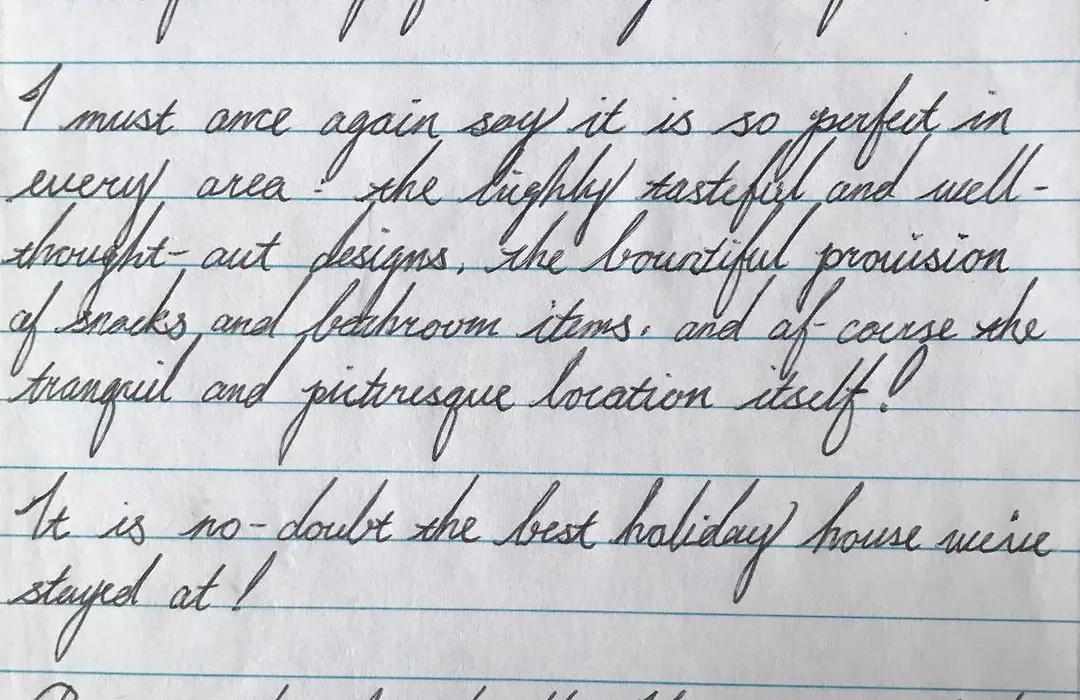 I must once again say it is so perfect in
every area - the highly tasteful and well-
thought-out designs, the bountiful provision
of snacks and bathroom items, and of course the
tranquil and picturesque location itself!
It is no-doubt the best holiday house we've
stayed at!